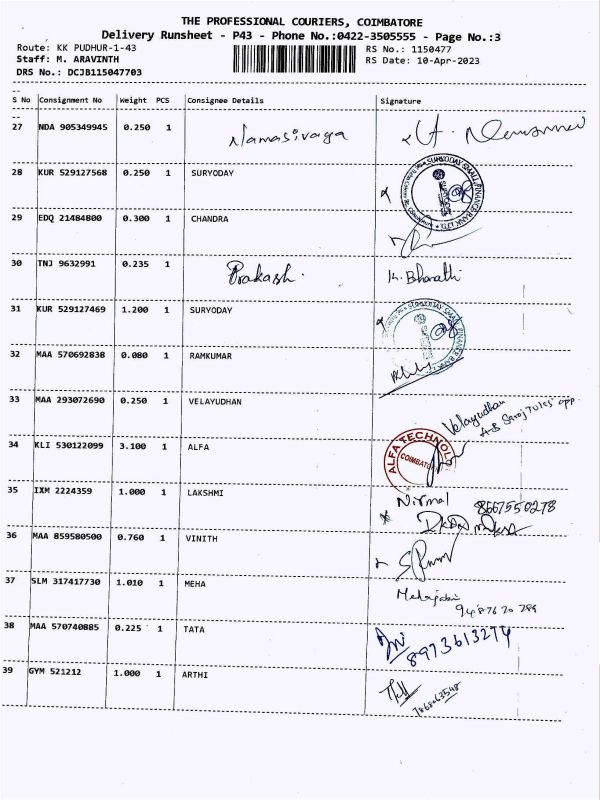 THE PROFESSIONAL COURIERS, COIMBATORE
Delivery Runsheet - P43 - Phone No.:0422-3505555 - Page No.:3
Route: KK PUDHUR-1-43 RS No.: 1150477
Staff: M. ARAVINTH RS Date: 10-Apr-2023
DRS No.: DCJB115047703
S No Consignment No Weight PCS Consignee Details Signature
27 NDA 905349945 0.250 1 Namasivaya
28 KUR 529127568 0.250 1 SURYODAY
SURYODAY SMALL FINANCE BANK LTD
29 EDQ 21484800 0.300 1 CHANDRA
30 TNJ 9632991 0.235 1 Prakash. K. Bharathi
31 KUR 529127469 1.200 1 SURYODAY
32 MAA 570692838 0.080 1 RAMKUMAR
33 MAA 293072690 0.250 1 VELAYUDHAN Velayudhan
34 KLI 530122099 3.100 1 ALFA ALFA TECHNOLO COIMBATO
35 IXM 2224359 1.000 1 LAKSHMI Nirmal 8667550278
36 MAA 859580500 0.760 1 VINITH
37 SLM 317417730 1.010 1 MEHA
94876 20 789
38 MAA 570740885 0.225 1 TATA 8973613274
39 GYM 521212 1.000 1 ARTHI